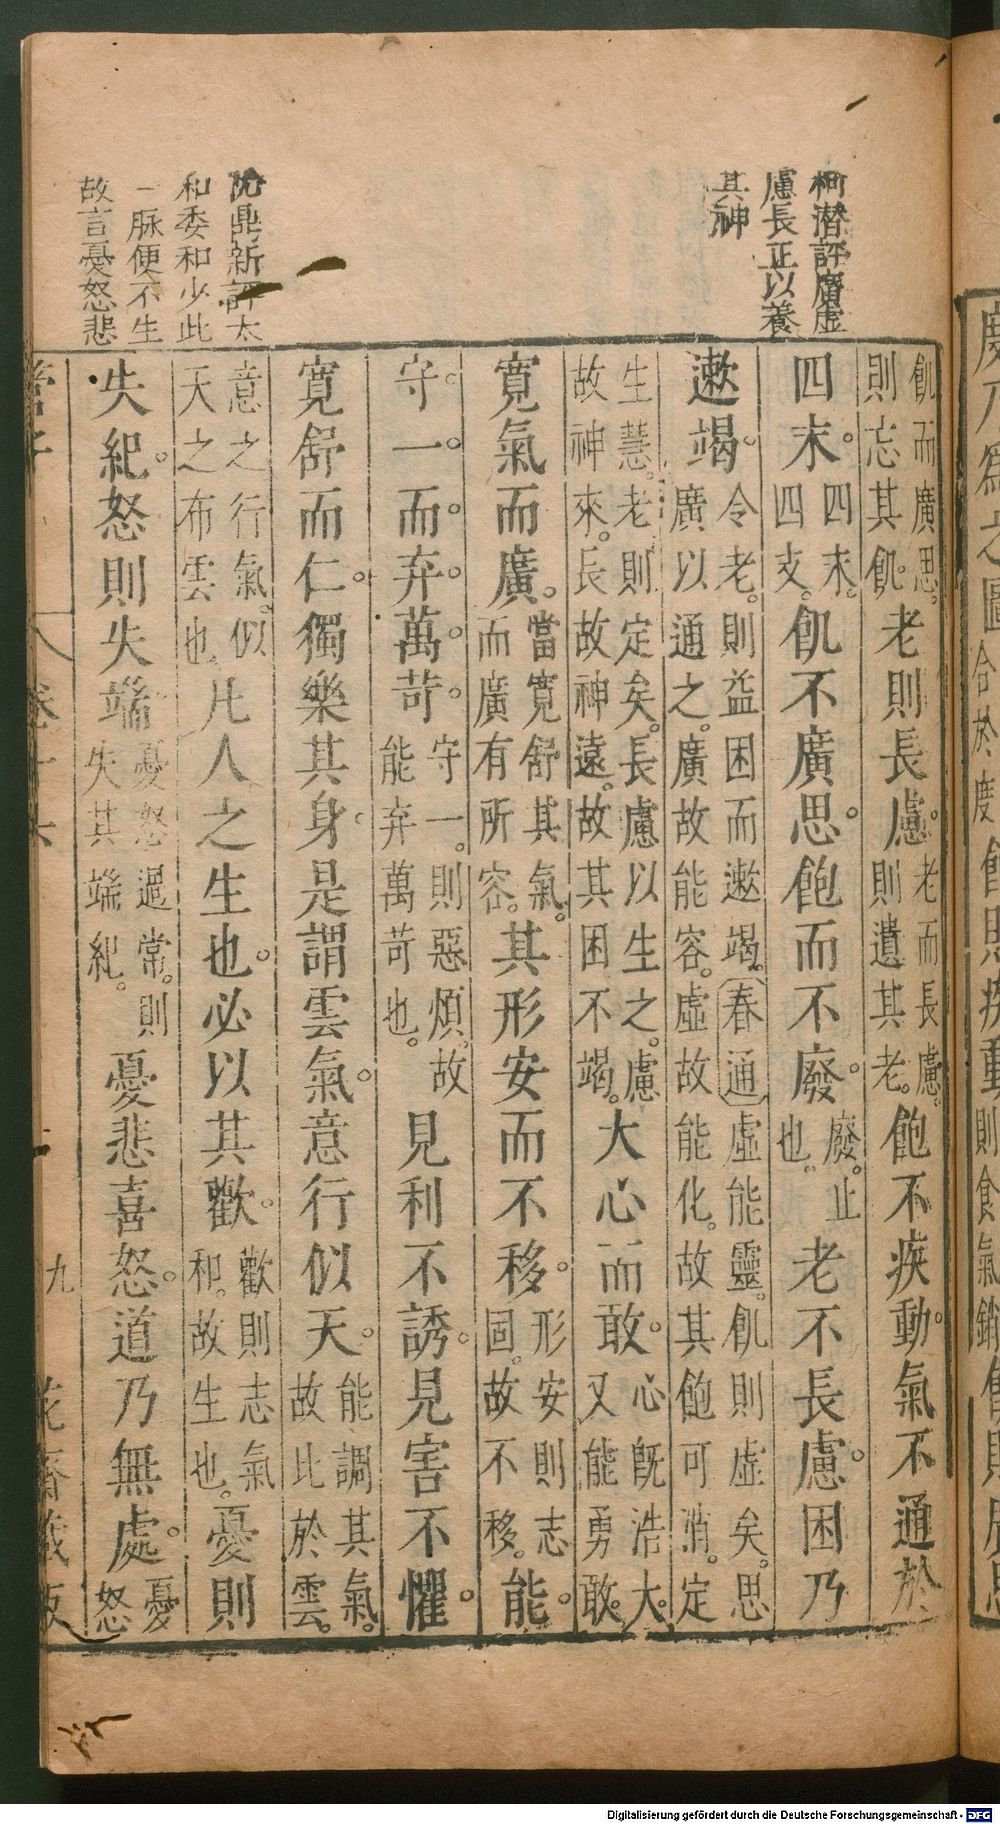 度乃爲之圖合於度飽則疾動則食氣銷飢則廣思
柯潛評廣虛
慮長正以養
其神
沈鼎新評太
和委和少此
一脉便不生
故言憂怒悲
飢而廣思。則忘其飢。老則長慮。老而長慮。則遺其老。飽不疾動。氣不通於
四末。四末。四支。飢不廣思。飽而不廢。廢。止也。老不長慮。困乃
遬竭。令老。則益困而遬竭。春通虛能靈。飢則虛矣。思廣以通之。廣故能容。虛故能化。故其飽可消。定
生慧。老則定矣。長慮以生之。慮故神來。長故神遠。故其困不竭。大心而敢。心旣浩大。又能勇敢。
寬氣而廣。當寬舒其氣。而廣有所容。其形安而不移。形安則志固。故不移。能
守一。而弃萬苛。守一。則惡煩。故能弃萬苛也。見利不誘。見害不懼。
寬舒而仁。獨樂其身。是謂雲氣。意行似天。能調其氣。故比於雲。
意之行氣。似天之布雲也。凡人之生也。必以其歡。歡則志氣和。故生也。憂則
失紀。怒則失端。憂怒過常。則失其端紀。憂悲喜怒。道乃無處。憂怒
管子 卷十六 九 花齋藏板
Digitalisierung gefördert durch die Deutsche Forschungsgemeinschaft - DFG